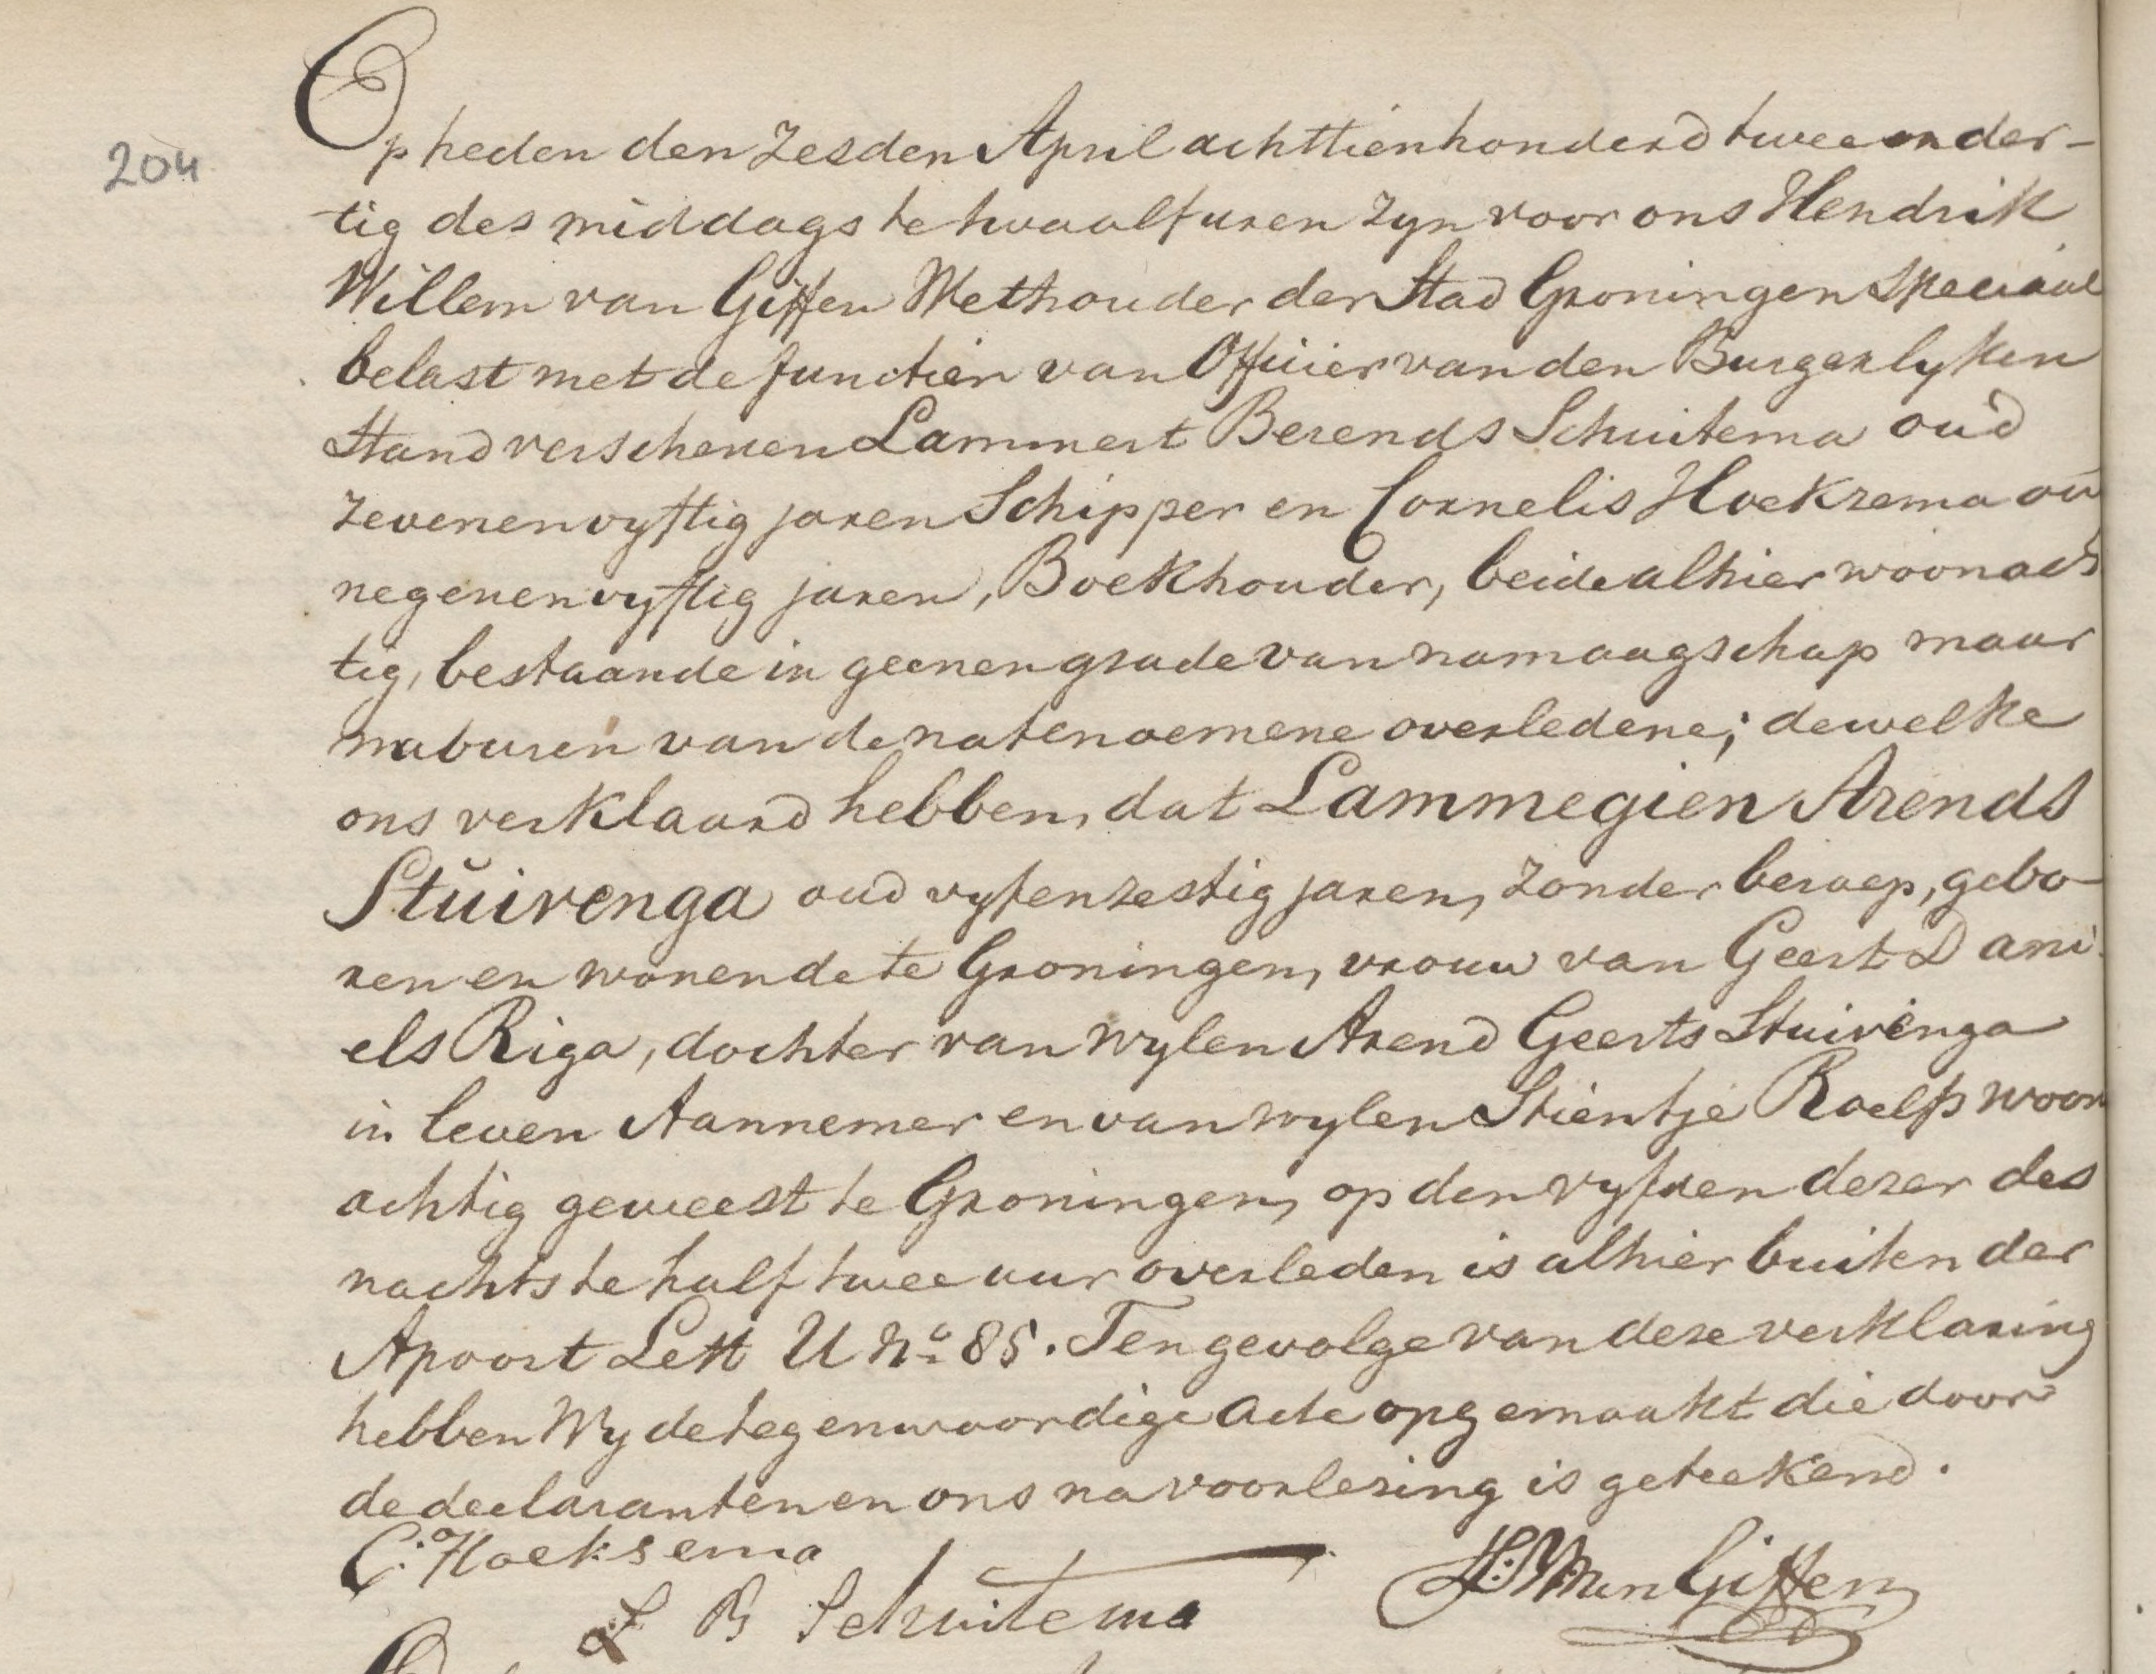 204
Op heden den Zesden April achttienhonderd twee en der-
tig des middags te twaalf uren zyn voor ons Hendrik
Willem van Giffen Wethouder der Stad Groningen speciaal
belast met de functien van Officier van den Burgerlyken
Stand verschenen Lammert Berends Schuitema oud
zevenenvyftig jaren Schipper en Cornelis Hoekzema ou
negenenvyftig jaren, Boekhouder, beide alhier woonach
tig, bestaande in geenen grade van namaagschap maar
naburen van de natenoemene overledene; dewelke
ons verklaard hebben, dat Lammegien Arends
Stuivenga oud vyfenzestig jaren, zonder beroep, gebo-
ren en wonende te Groningen, vrouw van Geert Dani
els Riga, dochter van wylen Arend Geerts Stuivenga
in leven Aannemer en van wylen Stientje Roelfs woon
achtig geweest te Groningen, op den vyfden dezer des
nachts te half twee uur overleden is alhier buiten der
Apoort Lett U No 85. Tengevolge van deze verklaring
hebben Wy de tegenwoordige acte opgemaakt die door
de declaranten en ons na voorlezing is geteekend.
C: Hoeksema
L B Schuitema
H: W: van Giffen